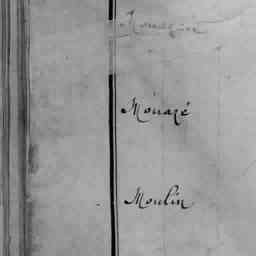 Mouazé
Moulin